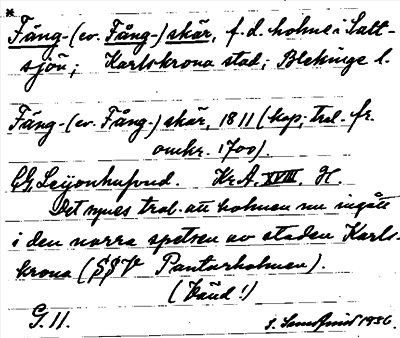 *
Fäng- (ev. Fång-) skär, f.d. holme i Salt-
sjön; Karlskrona stad; Blekinge l.
Fäng- (ev. Fång-) skär, 1811 (kop; trol. fr.
omkr. 1700).
CG. Leijonhufvud. Kr.A. XVIII. H.
Det synes trol. att holmen nu ingått
i den norra spetsen av staden Karls-
krona (SSV Pantarholmen).
(Känd!)
G. 11. 1936.